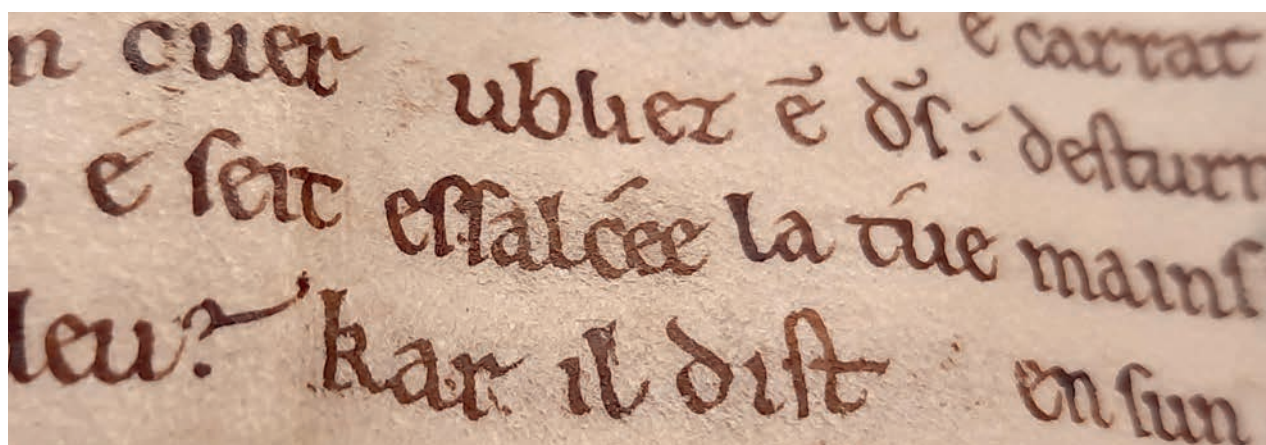 n cuer ublier ē d̄s: desturr
é seit essalcée la túe mains
deu? kar il dist en sun